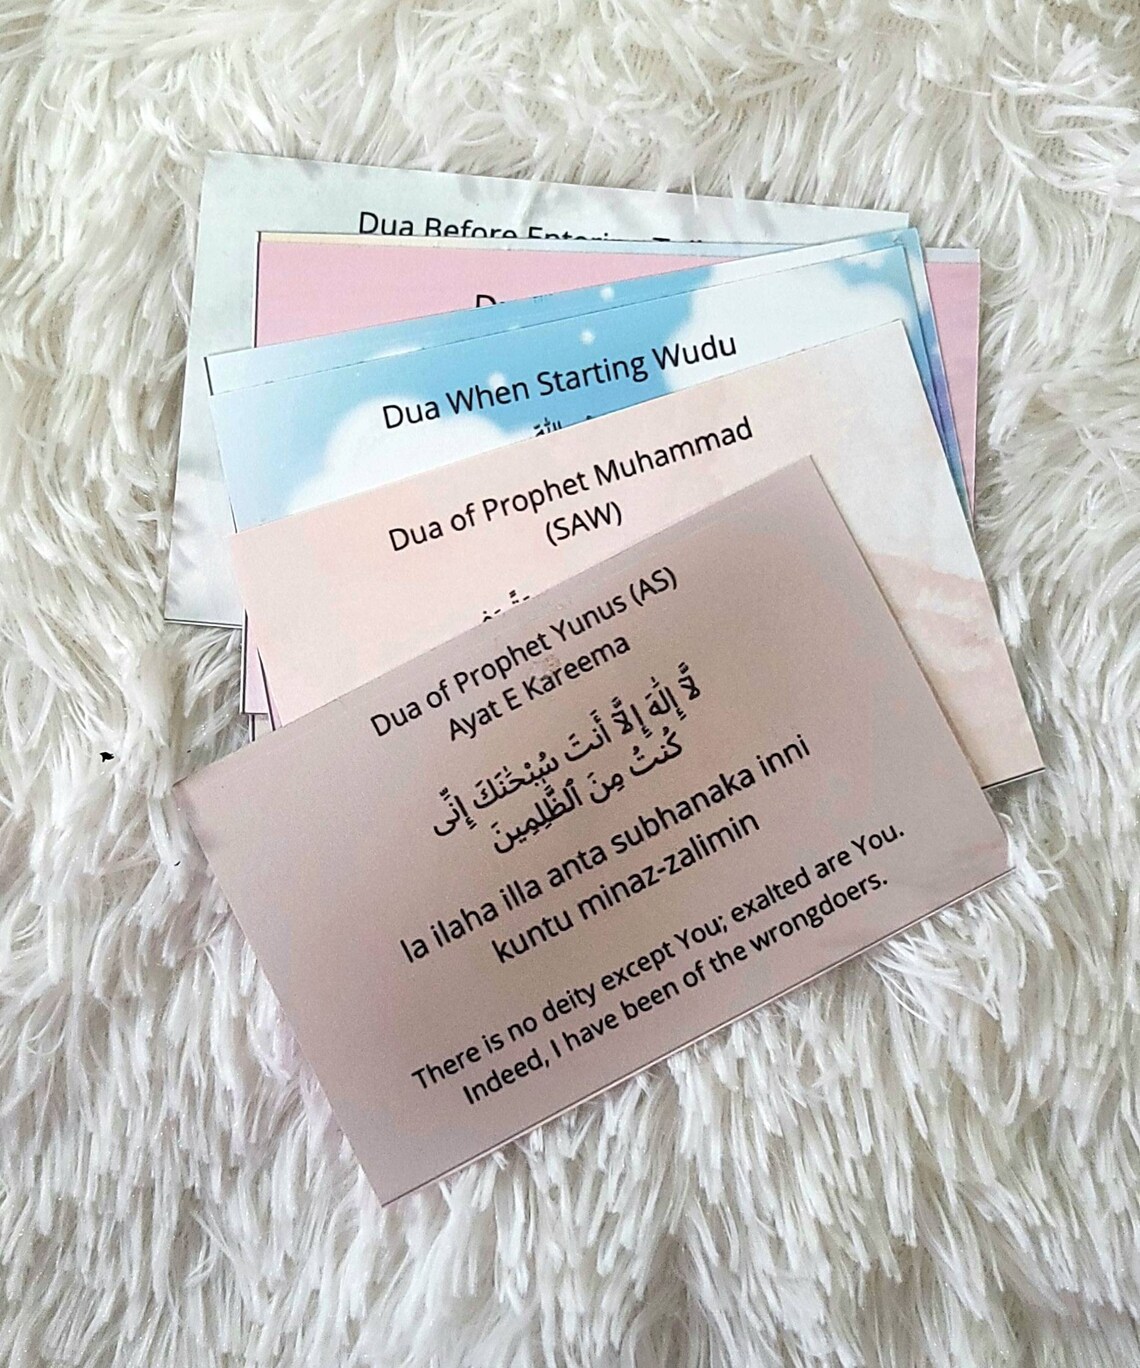 Dua Before Entering
Dua When Starting Wudu
Dua of Prophet Muhammad
(SAW)
Dua of Prophet Yunus (AS)
Ayat E Kareema
لَّا إِلَٰهَ إِلَّا أَنتَ سُبْحَٰنَكَ إِنِّى
كُنتُ مِنَ ٱلظَّٰلِمِينَ
la ilaha illa anta subhanaka inni
kuntu minaz-zalimin
There is no deity except You; exalted are You.
Indeed, I have been of the wrongdoers.